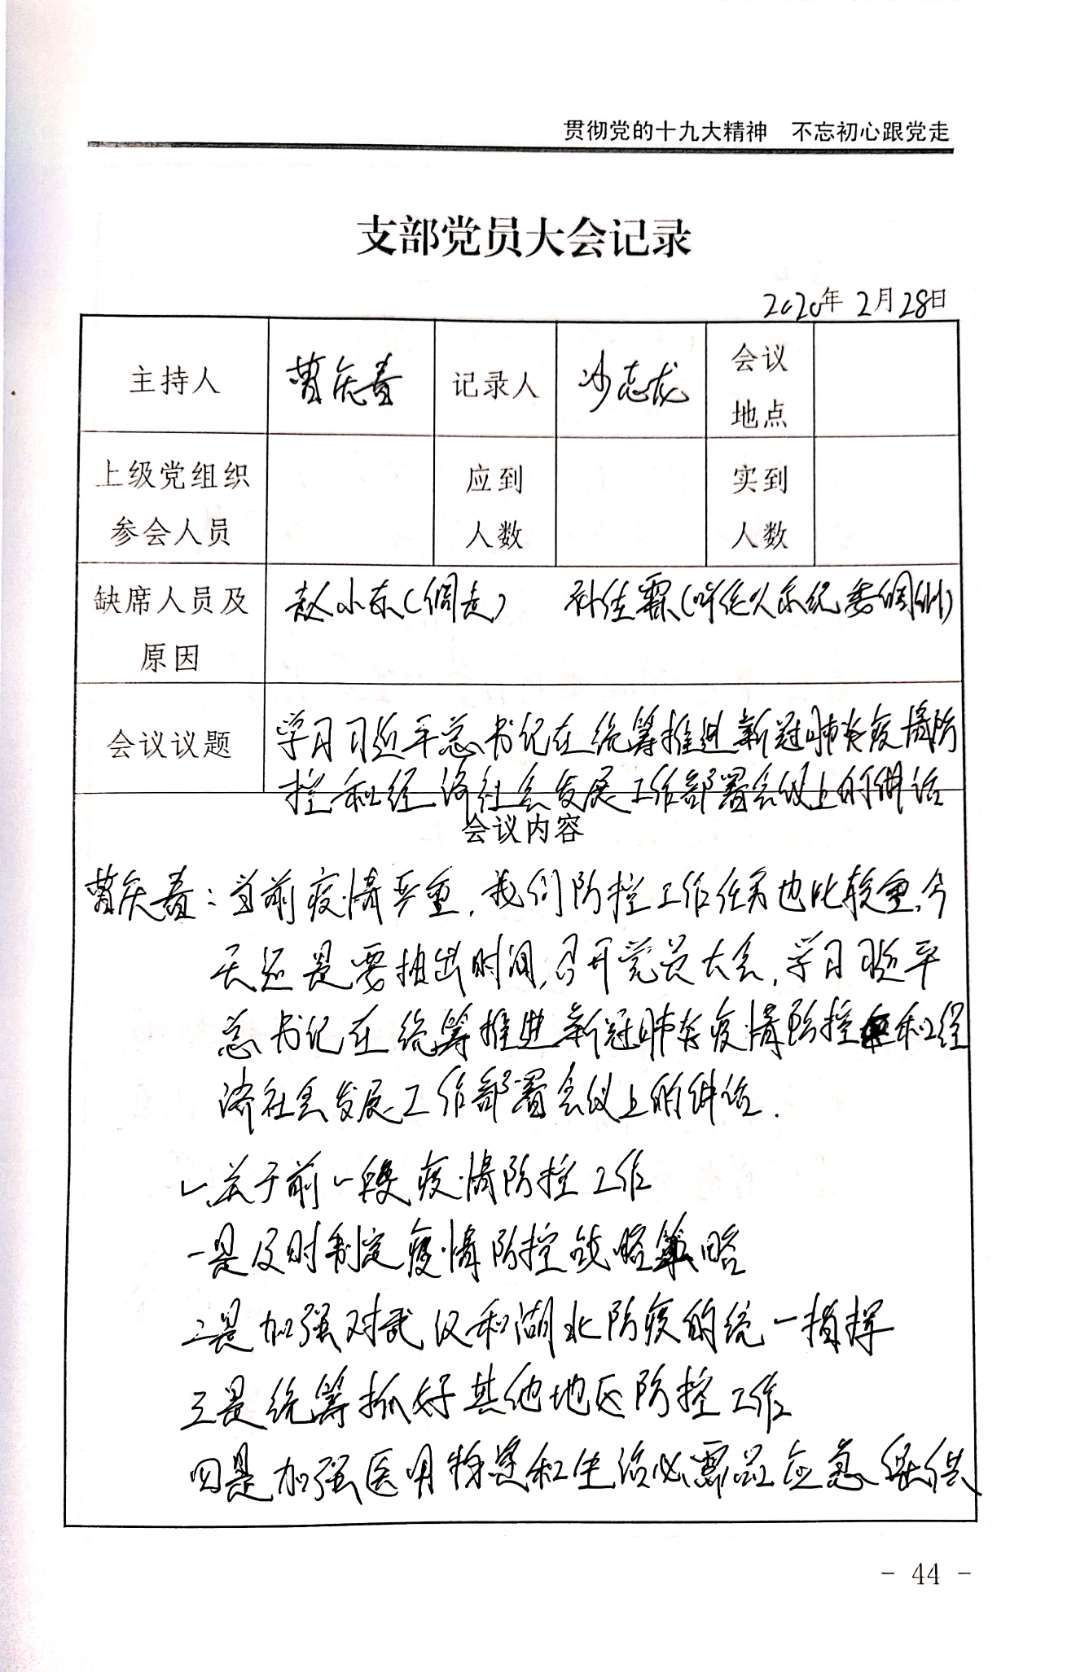 贯彻党的十九大精神 不忘初心跟党走
支部党员大会记录
2020年2月28日
主持人 曹庆春 记录人 沙志龙 会议地点
上级党组织参会人员 应到人数 实到人数
缺席人员及原因 赵小东(借走) 孙佳霖(呼伦贝尔纪委借调)
会议议题 学习习近平总书记在统筹推进新冠肺炎疫情防
控和经济社会发展工作部署会议上的讲话
会议内容
曹庆春:当前疫情严重,我们防控工作任务也比较重,今
天还是要抽出时间,召开党员大会,学习习近平
总书记在统筹推进新冠肺炎疫情防控和经
济社会发展工作部署会议上的讲话.
1、关于前一段疫情防控工作
一是及时制定疫情防控战略策略
二是加强对武汉和湖北防疫的统一指挥
三是统筹抓好其他地区防控工作
四是加强医用物资和生活必需品应急保供
- 44 -